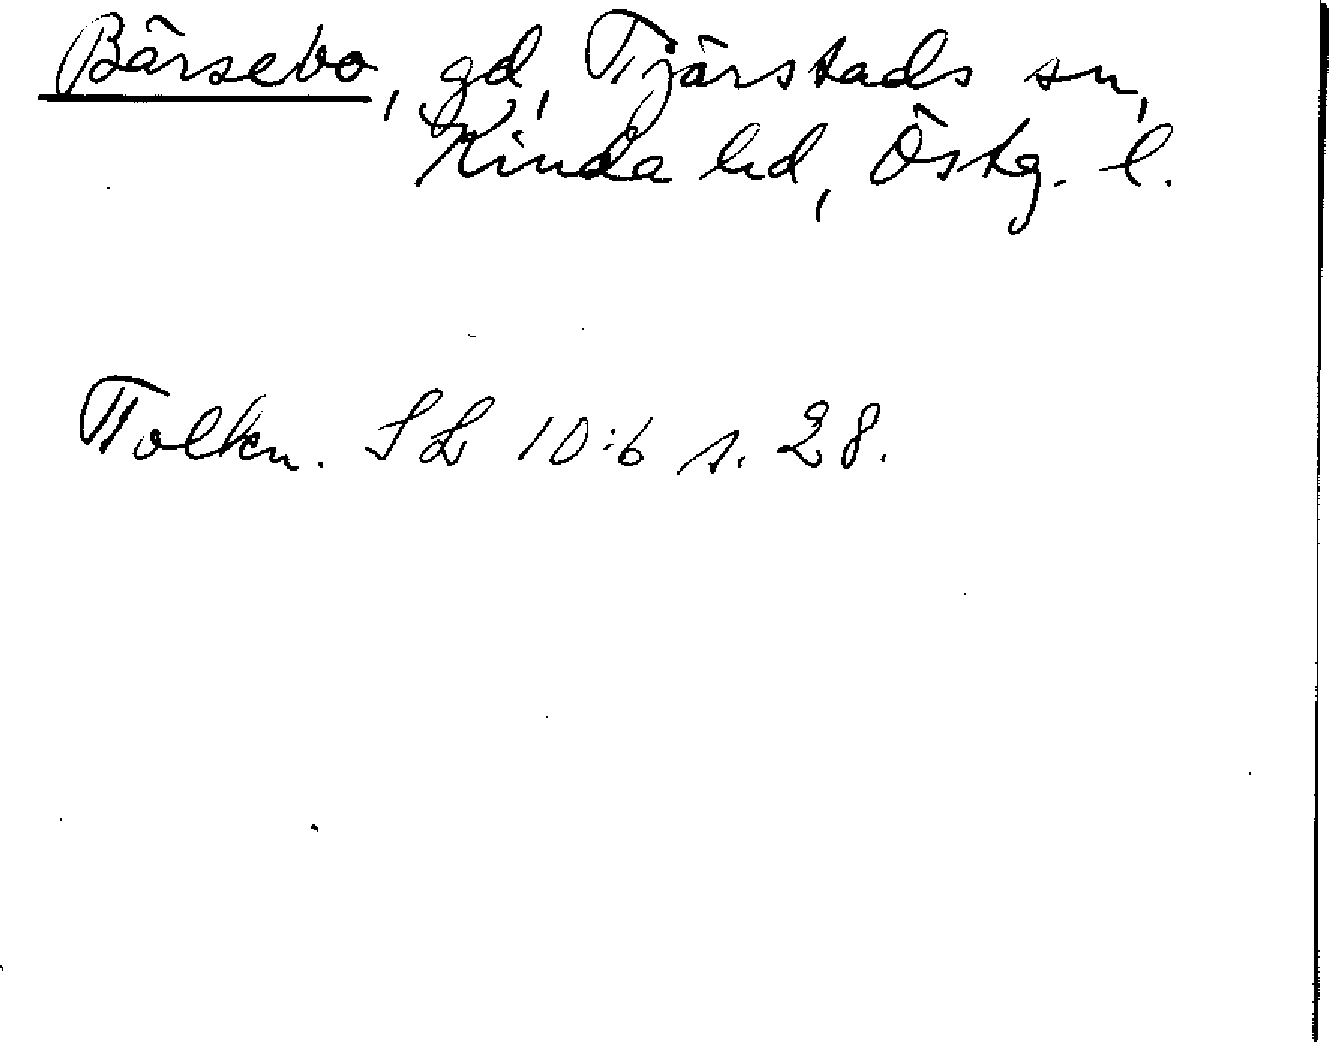 Bärsebo, gd, Tjärstads sn,
Kinda hd, Östg. l.
Tolkn. SL 10:6 s. 28.